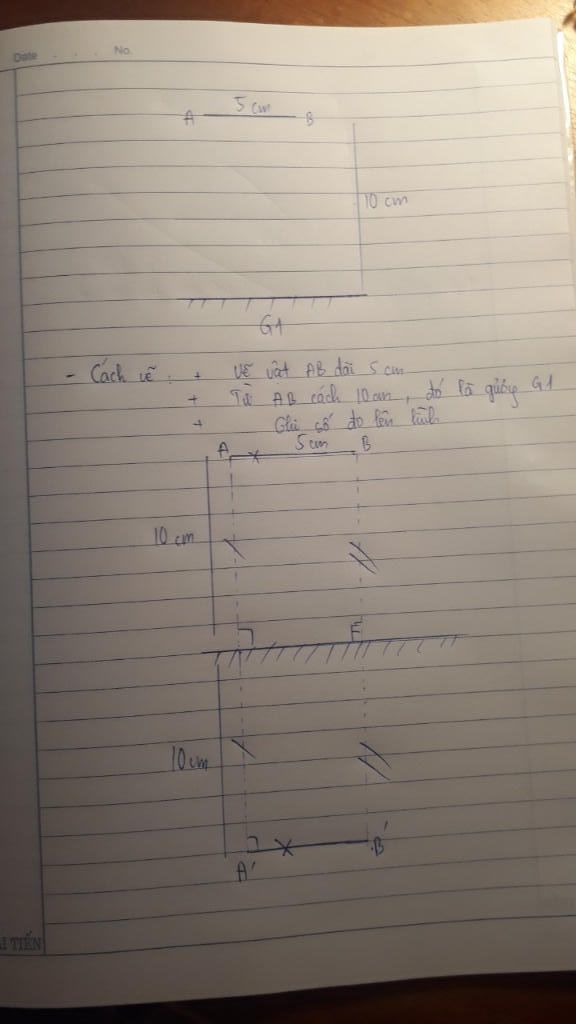 Date . . . No.
5 cm
A B
10 cm
G1
- Cách vẽ : + Vẽ vật AB dài 5 cm
+ Từ AB cách 10 cm, đó là gương G1
+ Ghi số đo lên hình
A 5 cm B
10 cm
10 cm
A' B'
TIẾN